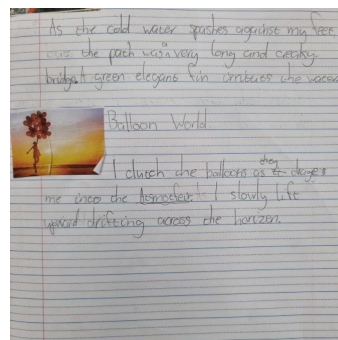 As the cold water splashes against my feet
the path was a very long and creaky
bridge. A green elegant fin the water
Balloon World
I clutch the balloons as they drage
me into the Atmosfear. I slowly lift
upward drifting across the horizen.